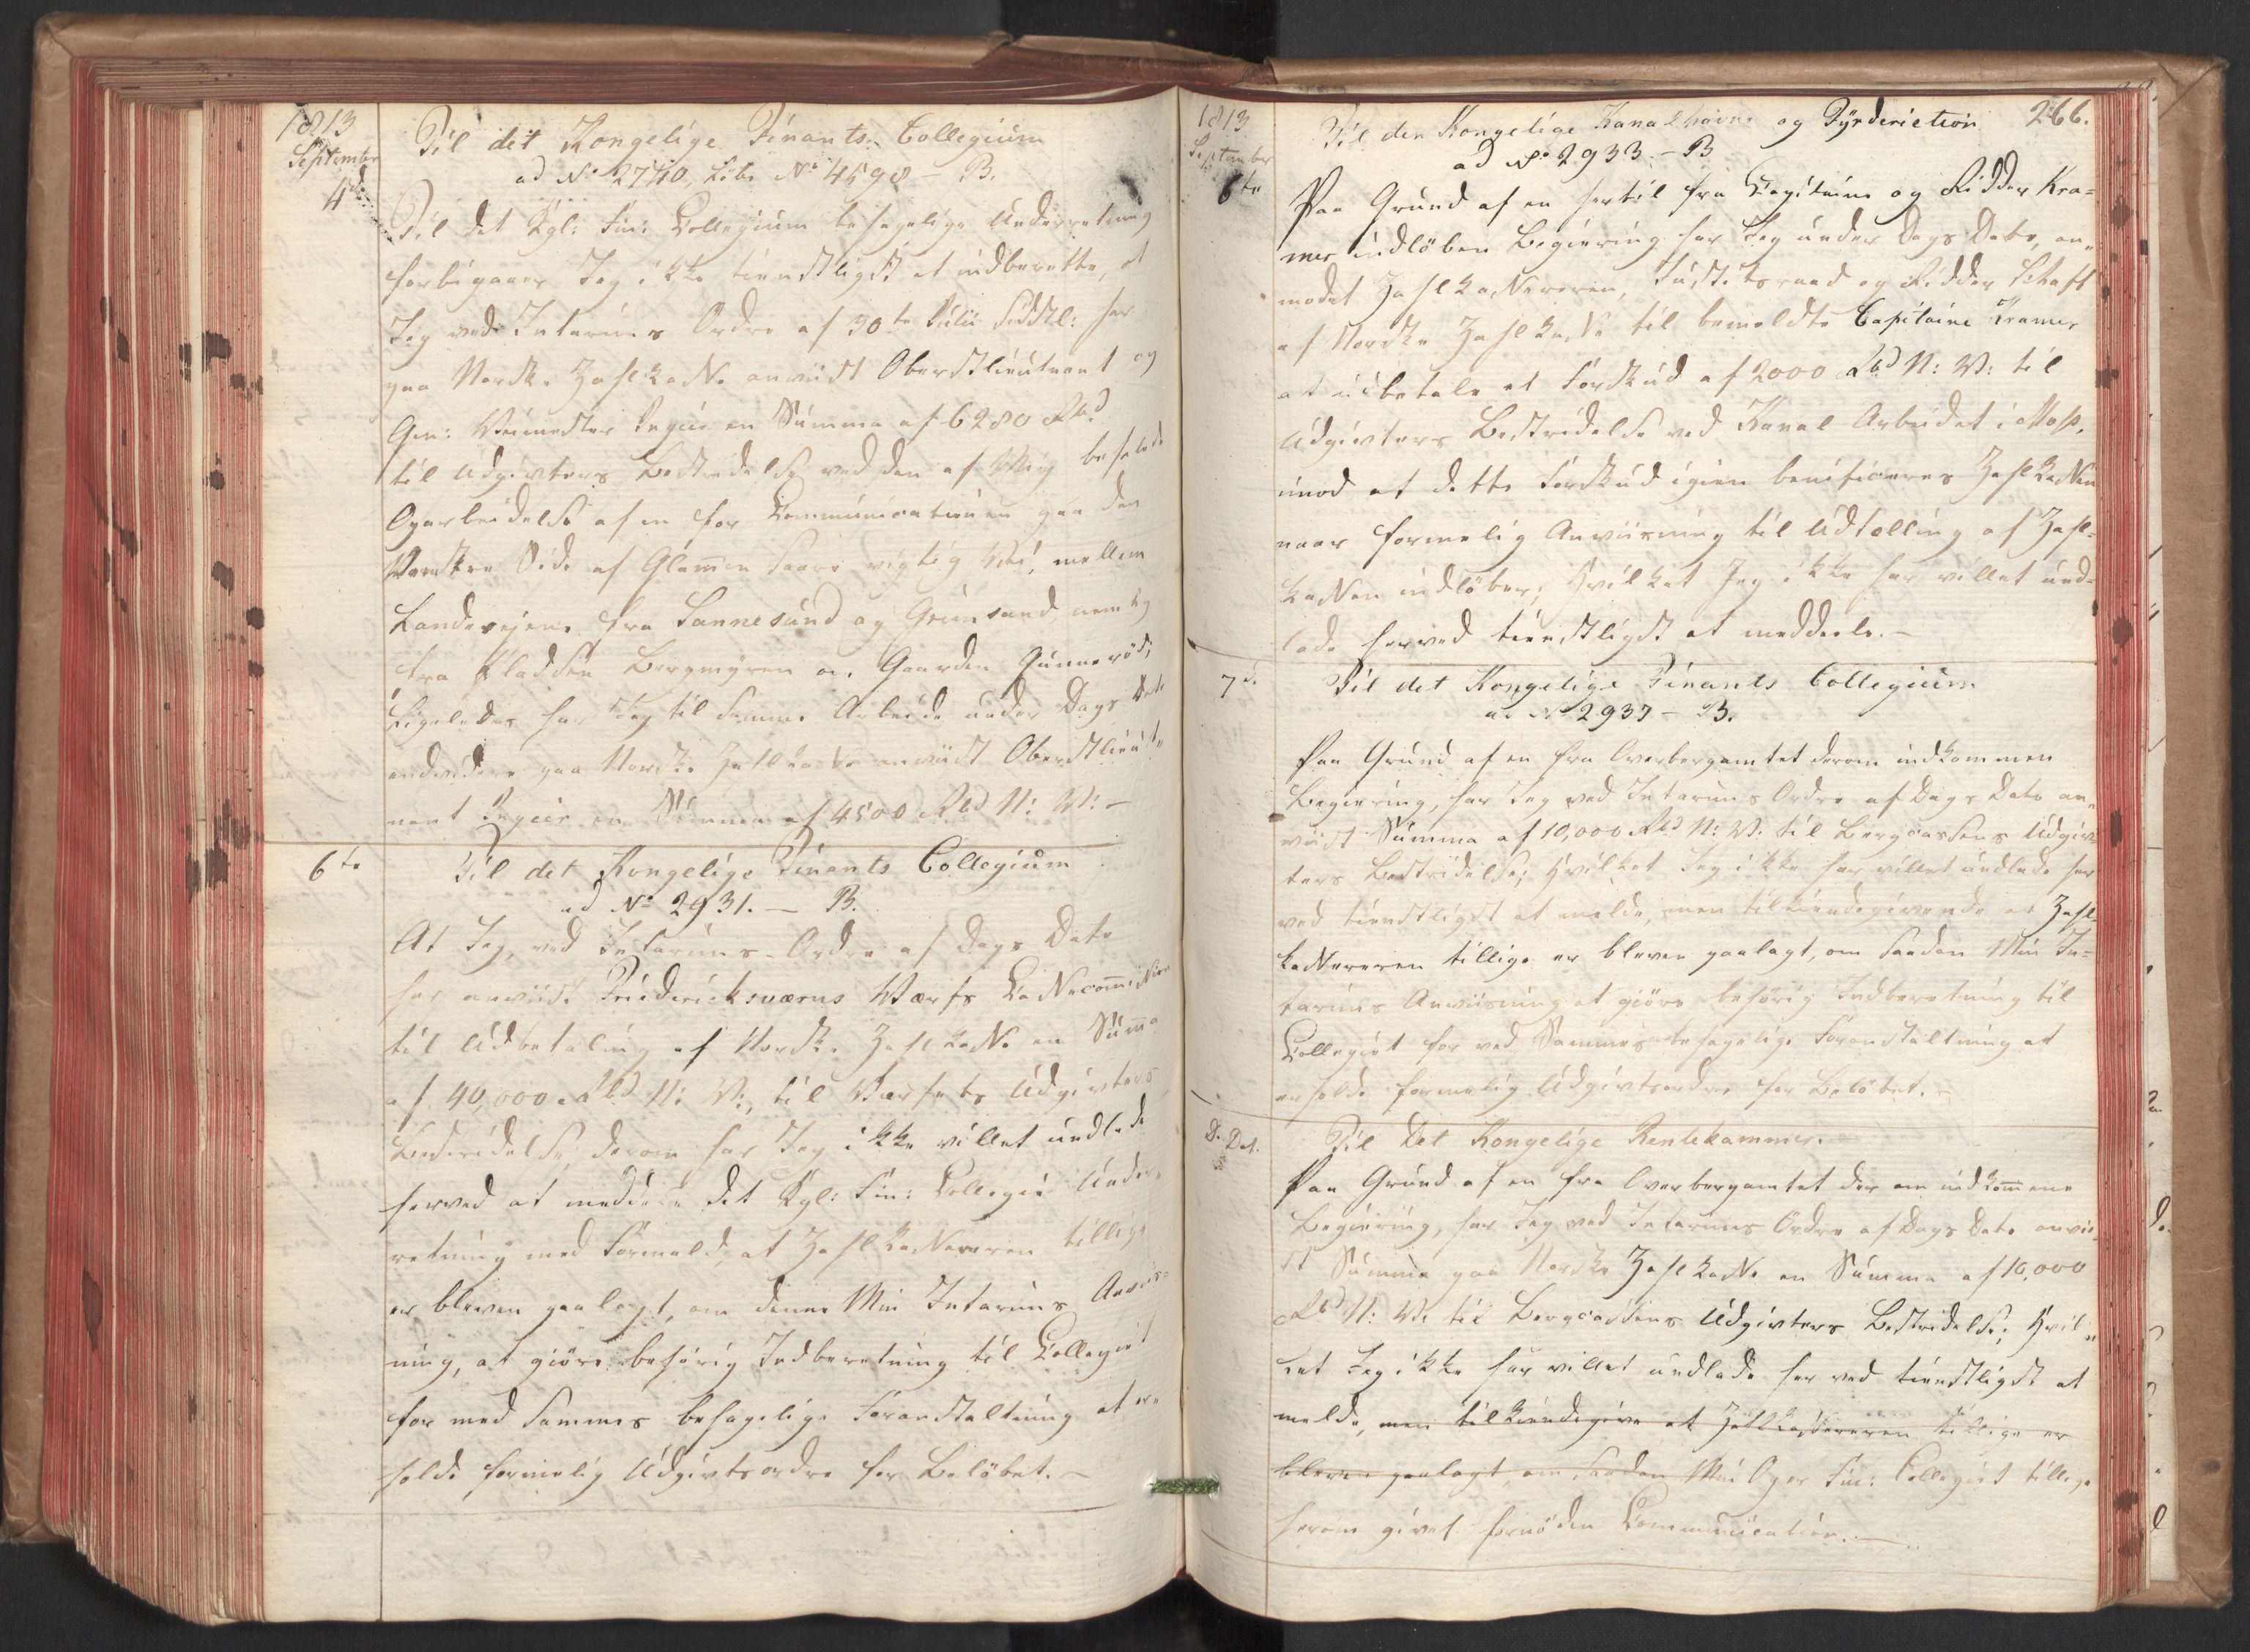 1813
September
4de
Til det Kongelige Finants-Collegium
ad No 2740, Löbe No 4598 – B.
Til det Kgl: Fin: Collegium behagelige Underretning
forbigaaer Jeg ikke tienstligst at indberette, at
Jeg ved Interims Ordre af 30te Julii sidstl: har
paa Norske Zahlkasse anviist Oberstlieutenant og
Gen: Veimester Pegier en Summa af 6280 Rbd
til Udgivters Bestridelse ved den af Mig befalede
Oparbeidelse af en for Communicationen paa den
Venstre Side af Glommen saare vigtig Vei, mellem
Landevejene fra Sannesund og Grimsund nemlig
fra Pladsen Bergmyren a. Gaarden Gunnerød;
Ligeledes har Jeg til samme Arbeide under Dags Dato
endvidere paa Norske Zahlkasse anviist Oberstlieute-
nant Pegier en Summa af 4500 Rbd N: V: –
6te
Til det Kongelige Finants Collegium
ad No 2931. – B.
At Jeg, ved Interims-Ordre af Dags Dato
har anviist Fridericksværns Værfs Cassecommission
til Udbetaling af Norske Zahlkasse en Summa
af 40,000 Rbd N: V:, til Værfets Udgivters
Bestridelse, derom har Jeg ikke villet undlade
herved at meddele det Kgl: Fin: Collegie Under-
retning med Formeld, at Zahlkassereren tillige
er bleven paalagt, om denne Min Interims Anviis-
ning, at giöre behörig Indberetning til Collegiet
for med Sammes behagelige Foranstaltning at er-
holde formelig Udgivtsordre for Belöbet. –
1813
September
6te
266.
Til den Kongelige Kanal havne og Fyrdirection
ad No 2933 – B
Paa Grund af en hertil fra Capitaine og Ridder Kra-
mer indlöben Begiering har Jeg under Dags Dato, an-
modet Zahlkassereren, Justitsraad og Ridder Schaft
af Norske Zahlkasse til bemeldte Capitaine Kramer
at udbetale et Forskud af 2000 Rbd N: V: til
Udgivters Bestridelse ved Kanal Arbeidet i Moss,
imod at dette Forskud igien beneficeres Zahlkassen
naar formelig Anviisning til Udtælling af Zahl-
kassen indlöber; hvilket Jeg ikke har villet und-
lade herved tienstligst at meddeele. –
7de
Til det Kongelige Finants Collegium
ad No 2937 – B.
Paa Grund af en fra Overbergamtet derom indkommen
Begiering, har Jeg ved Interims Ordre af Dags Dato an-
viist Summa af 10,000 Rbd N: V. til Bergcassens Udgiv-
ters Bestridelse; hvilket Jeg ikke har villet undlade her
ved tienstligst at melde, men tilkiendegivende at Zahl-
kassereren tillige er bleven paalagt, om saadan Min In-
terims Anviisning at giöre behörig Indberetning til
Collegiet for ved Sammes behagelige Foranstaltning at
erholde formelig Udgivtsordre for Belöbet. –
D. Dat.
Til Det Kongelige Rentekammer.
Paa Grund af en fra Overbergamtet der om indkommene
Begiering, har Jeg ved Interims Ordre af Dags Dato anvii-
st Summa paa Norske Zahlkasse en Summa af 10,000
Rbd N: V. til Bergcassens Udgivters Bestridelse; hvil-
ket Jeg ikke har villet undlade her ved tienstligst at
melde, men tilkiendegive at Zahlkassereren tillige er
bleven paalagt, om saadan Min Og er Fin: Collegiet tillige
herom givet fornöden Communication. –